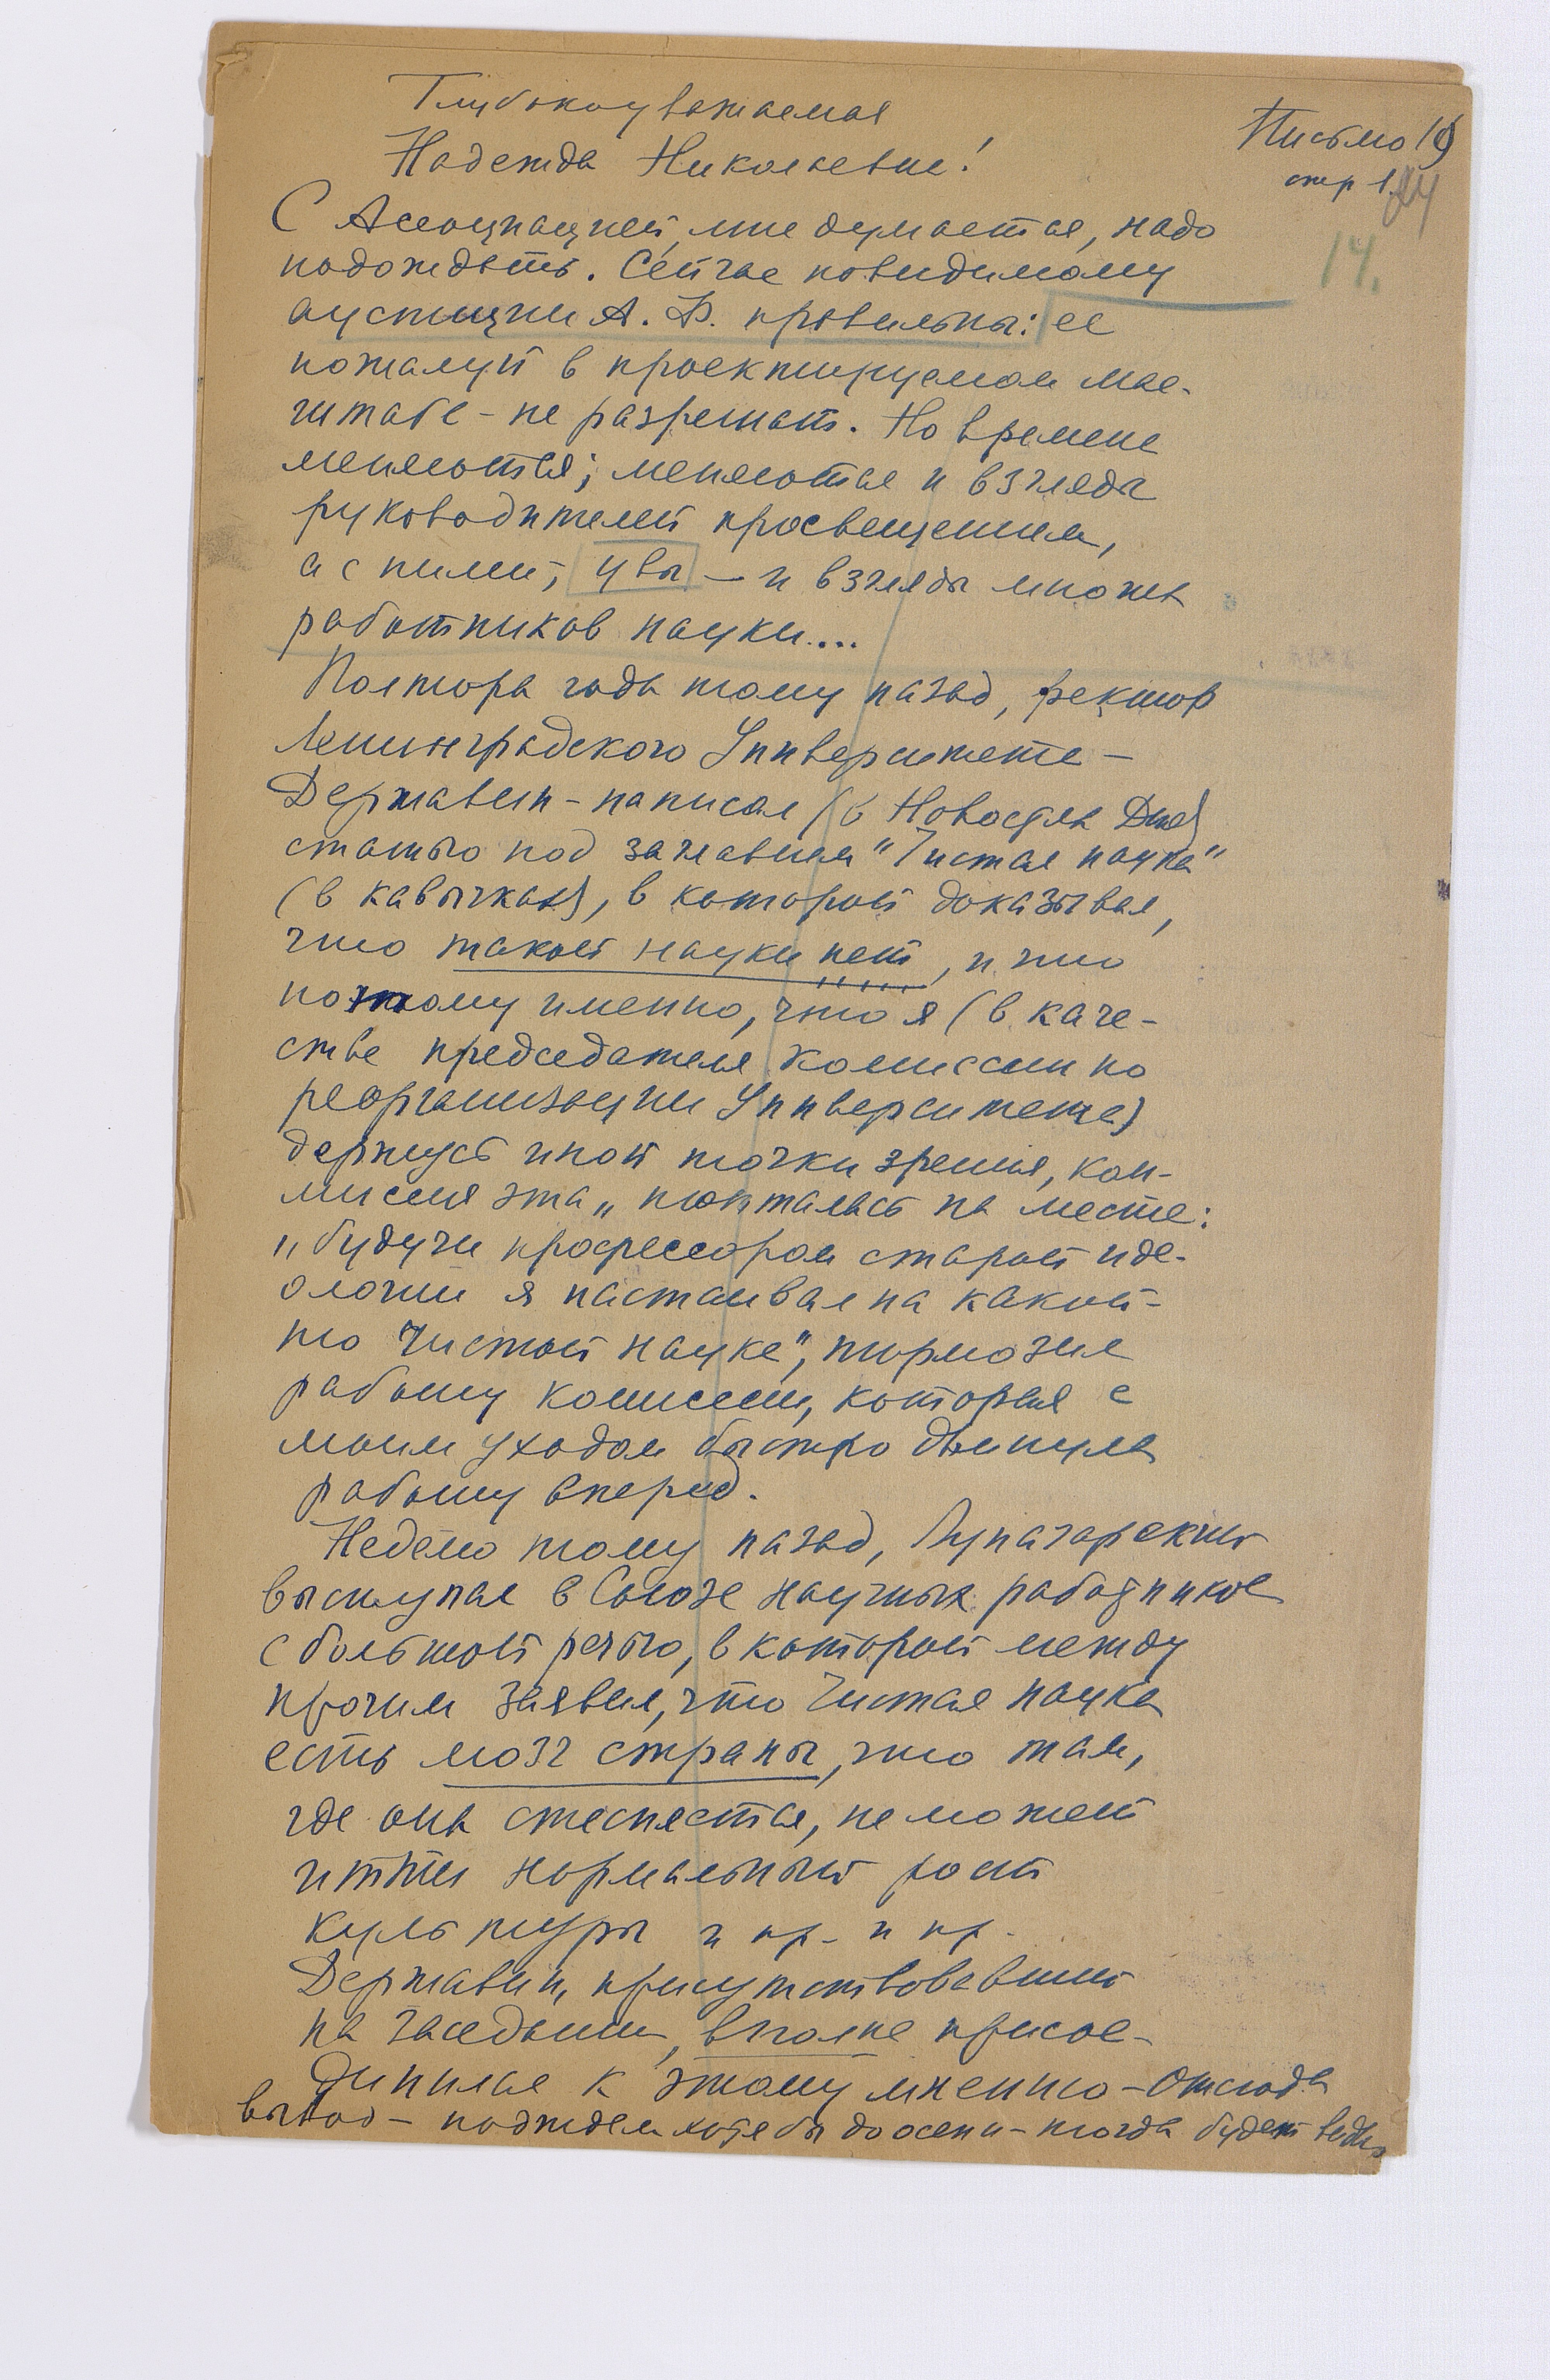 Глубокоуважаемая
Надежда Николаевна!
Письмо 19
стр 1.
24
14.
С Ассоциацией, мне думается, надо
подождать. Сейчас повидимому
А. В. правильны: ее
пожалуй в проектируемом мас-
штабе - не разрешат. Но времена
меняются; меняются и взгляды
руководителей просвещением,
а с ними, увы — и взгляды многих
работников науки....
Полтора года тому назад, ректор
Ленинградского Университета —
Державин - написал (в Новостях Дня)
статью под заглавием "Чистая наука"
(в кавычках), в которой доказывал,
что такой науки нет, и что
потому именно, что я (в каче-
стве председателя комиссии по
реорганизации Университета)
держусь иной точки зрения, ком-
миссия эта „ топталась на месте:
„ будучи профессором старой иде-
ологии я настаивал на какой-
то чистой науке", тормозил
работу комиссии, которая с
моим уходом быстро двинула
работу вперед.
Неделю тому назад, Луначарский
выступал в Союзе научных работников
с большой речью, в которой между
прочим заявил, что чистая наука
есть мозг страны, что там,
где она стесняется, не может
итти нормальный рост
культуры и пр. и пр.
Державин, присутствовавший
на заседании, вполне присое-
динился к этому мнению - Отсюда
вывод - подождем хотя бы до осени - тогда будет видно